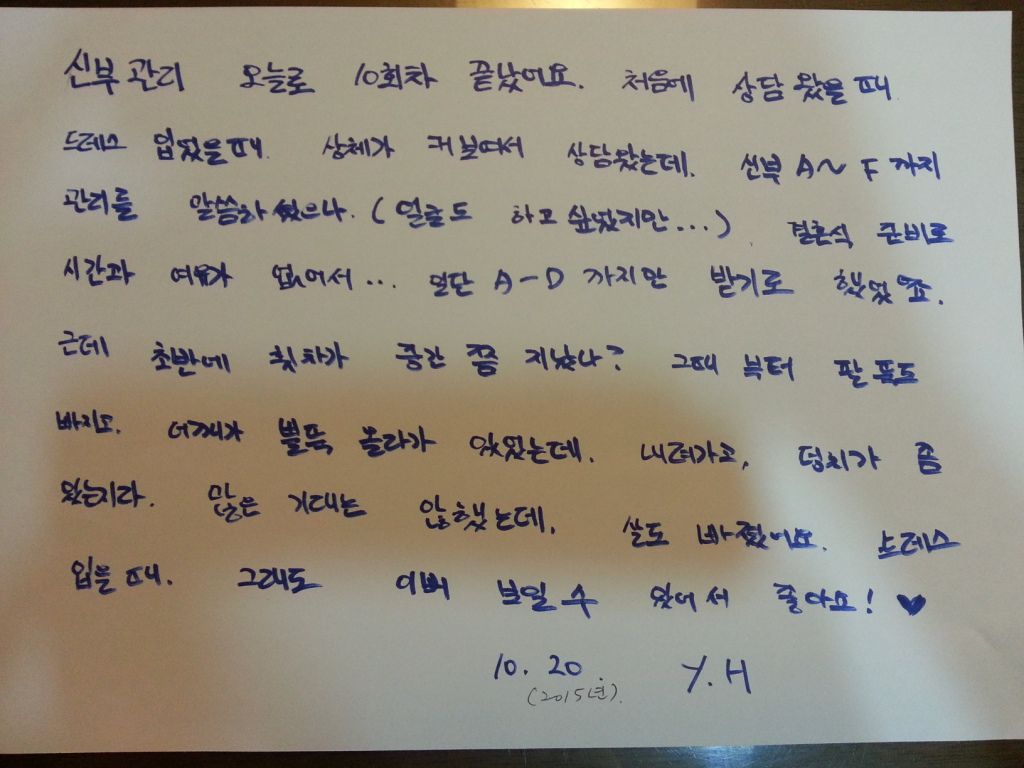 신부관리 오늘로 10회차 끝났어요. 처음에 상담 왔을때
드레스 입었을때. 상체가 커보여서 상담왔는데. 신부 A~F 까지
관리를 말씀하셨으나. (얼굴도 하고 싶었지만...) 결혼식 준비로
시간과 여유가 없어서... 일단 A-D 까지만 받기로 했었죠.
근데 초반에 횟차가 중간쯤 지났나? 그때부터 팔뚝도
빠지고. 어깨가 불뚝 올라가 있었는데. 내려가고, 덩치가 좀
있는지라. 많은 기대는 않했는데, 살도 빠졌어요. 드레스
입을때. 그래도 이뻐 보일수 있어서 좋아요! ♥
10. 20. Y.H
(2015년).